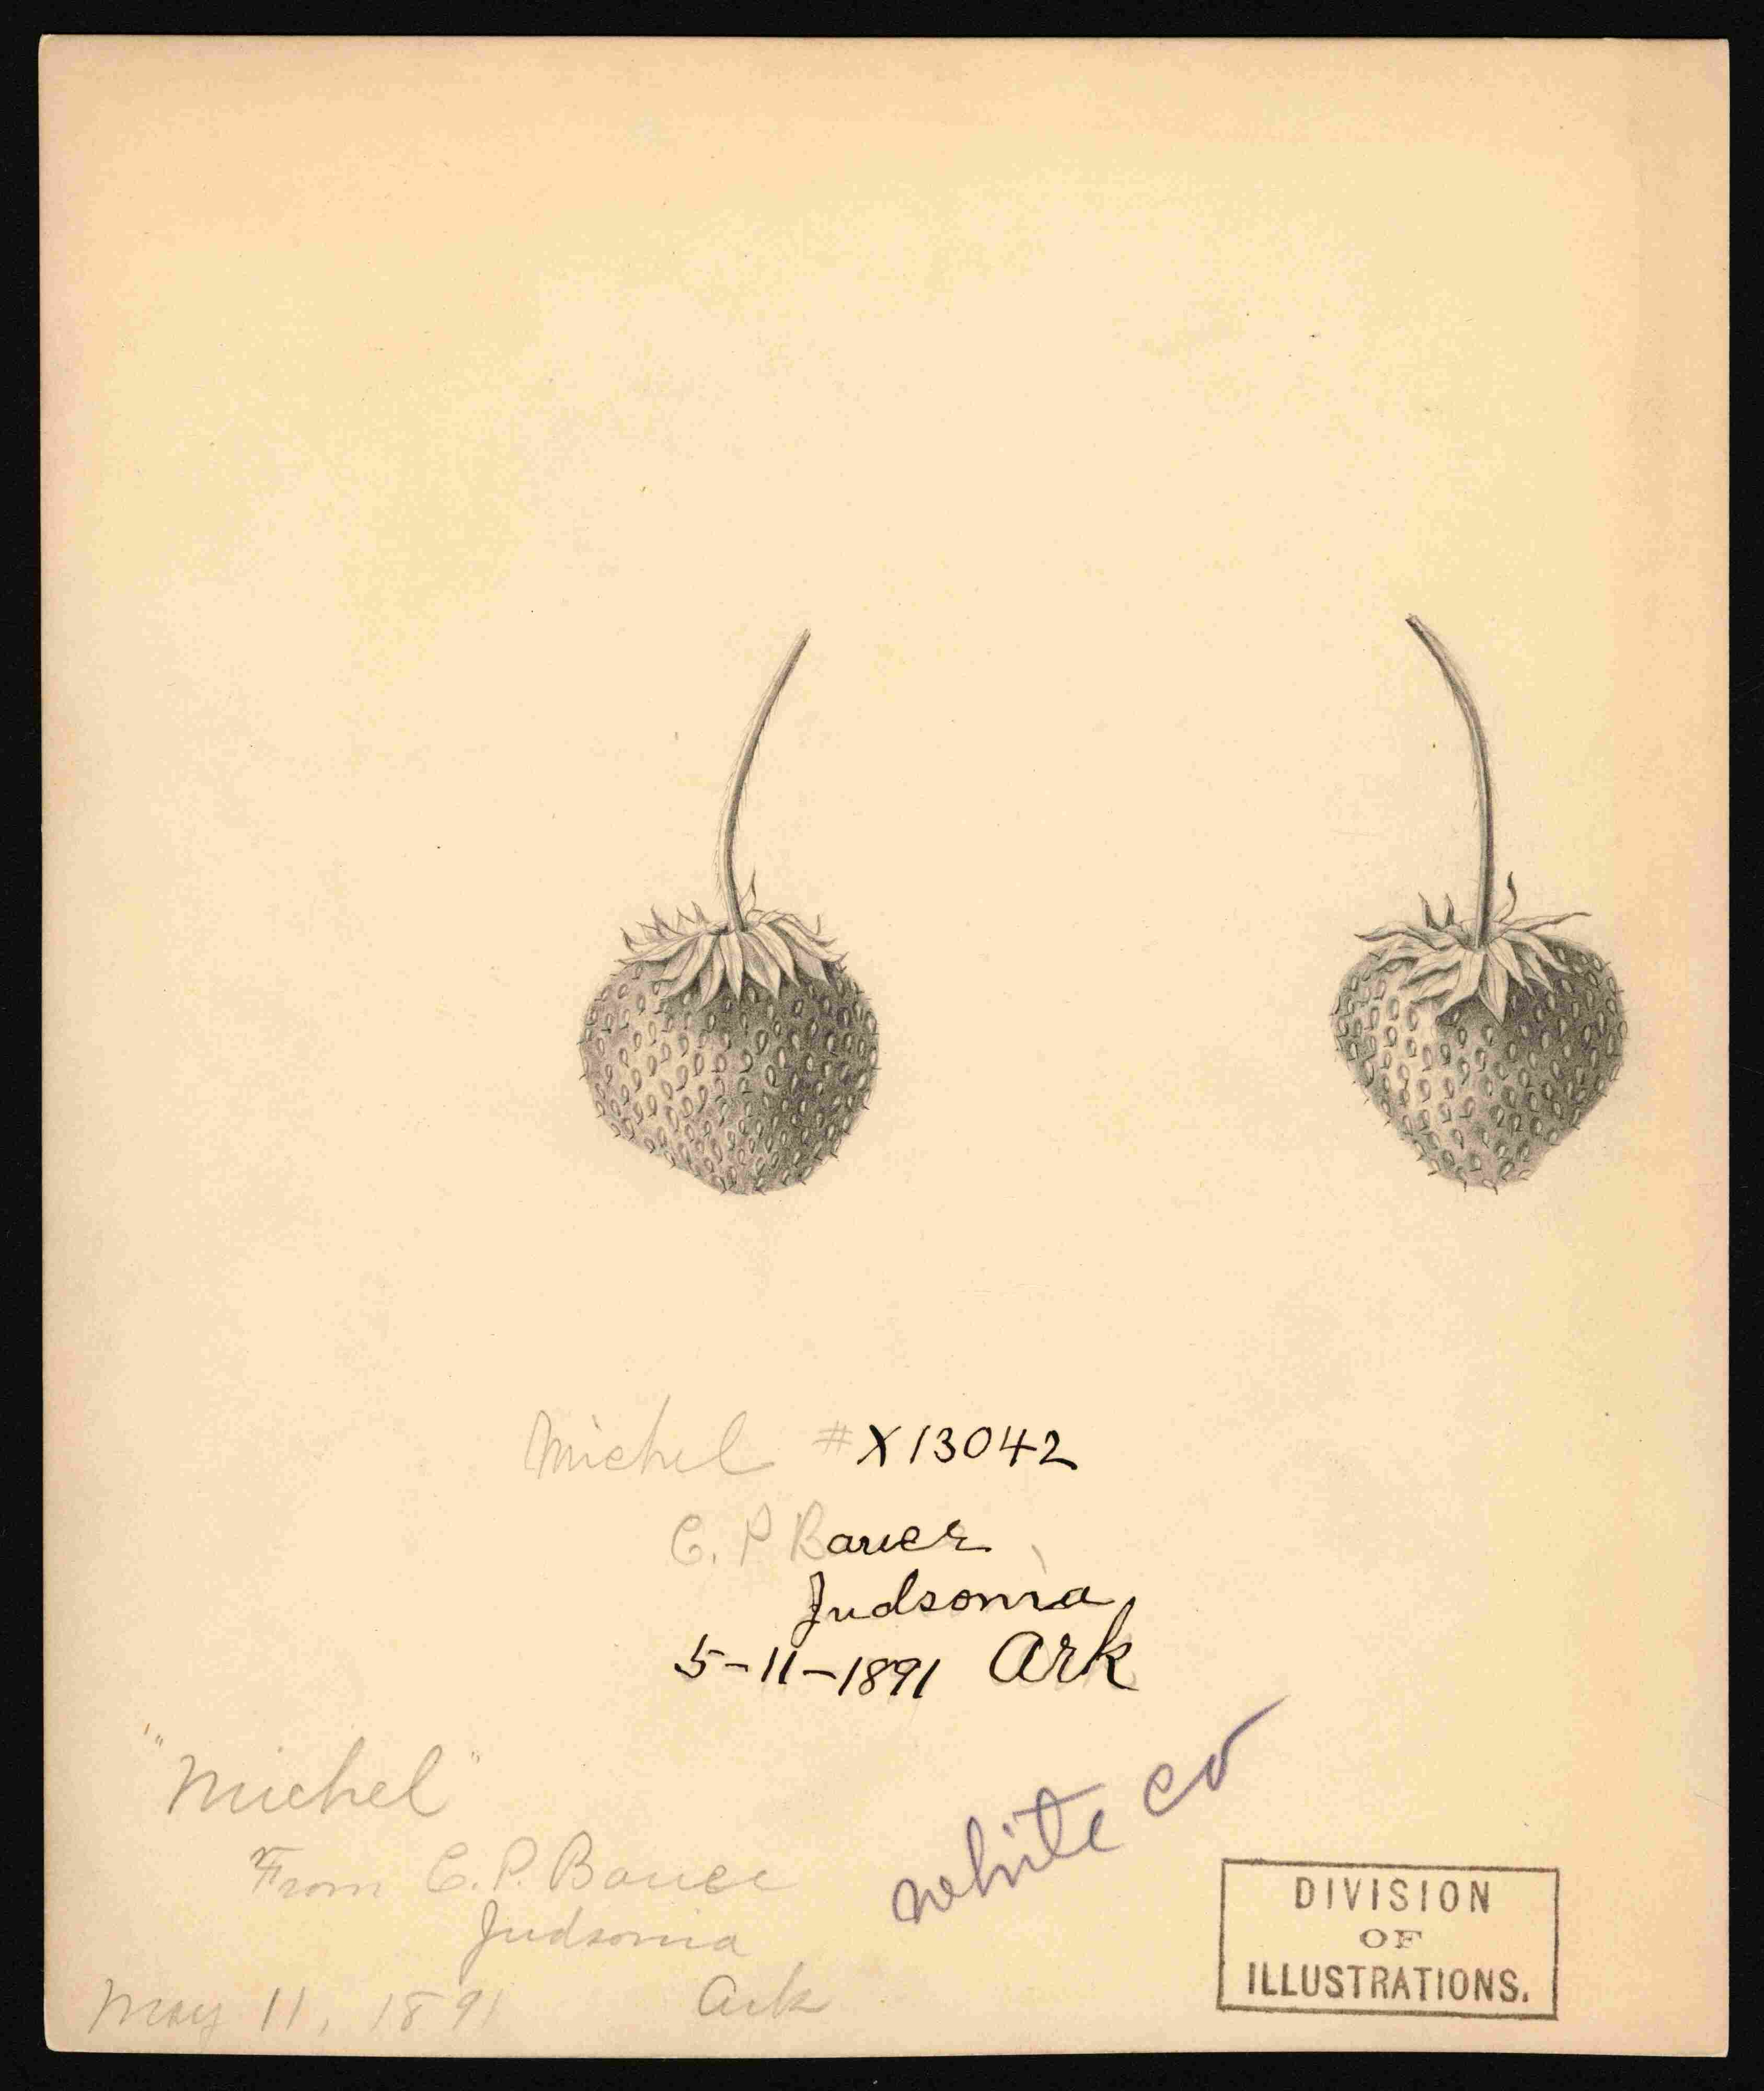 Michel #X13042
C. P Bauer
Judsonia
5-11-1891 Ark
"Michel"
From C. P. Bauer
Judsonia
May 11, 1891 Ark
white co
DIVISION
OF
ILLUSTRATIONS.